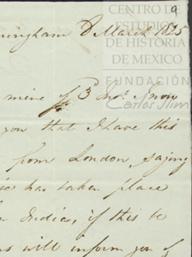 9
CENTRO DE
ESTUDIOS
DE HISTORIA
DE MEXICO
FUNDACIÓN
Carlos Slim
8 March 1835
mine
you that I have this
from London, saying
has taken place
Indies, if this be
will inform you of